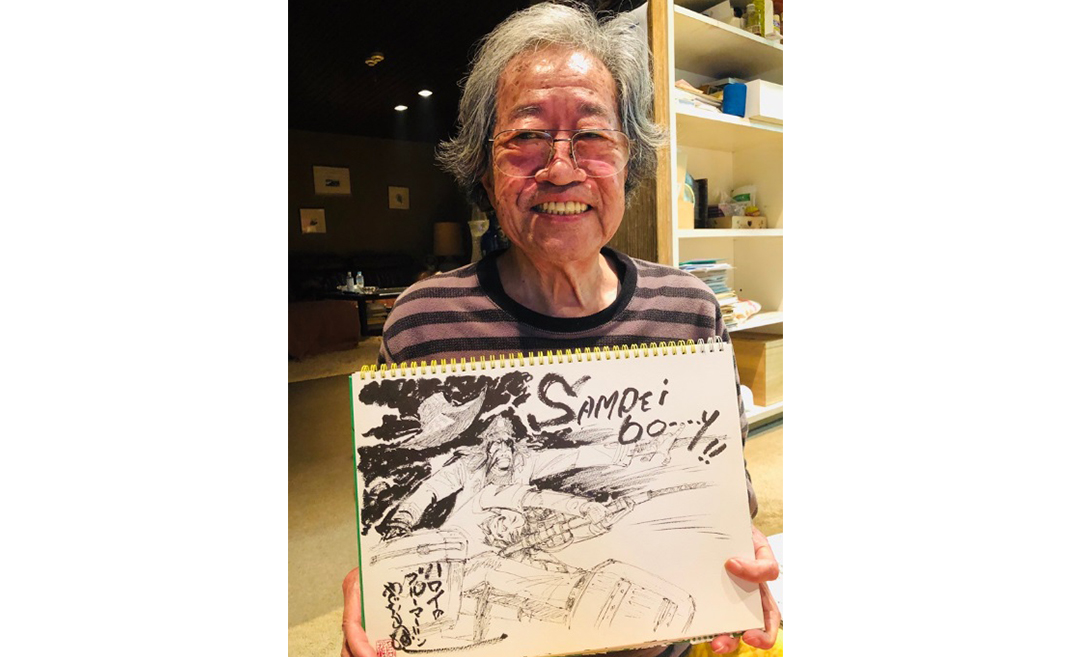 SAMPEi
bo····y!!
ハロイの
ブルーマーリン